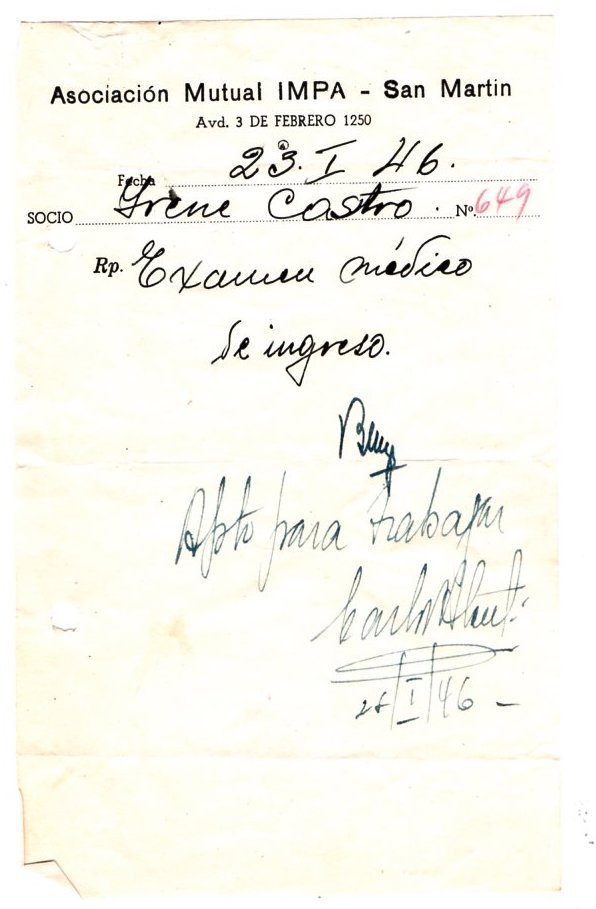 Asociación Mutual IMPA - San Martin
Avd. 3 DE FEBRERO 1250
Fecha 23. I 46.
SOCIO Irene Castro. Nº. 649
Rp. Examen médico
de ingreso.
Apto para trabajar
Carlos
I/46 -